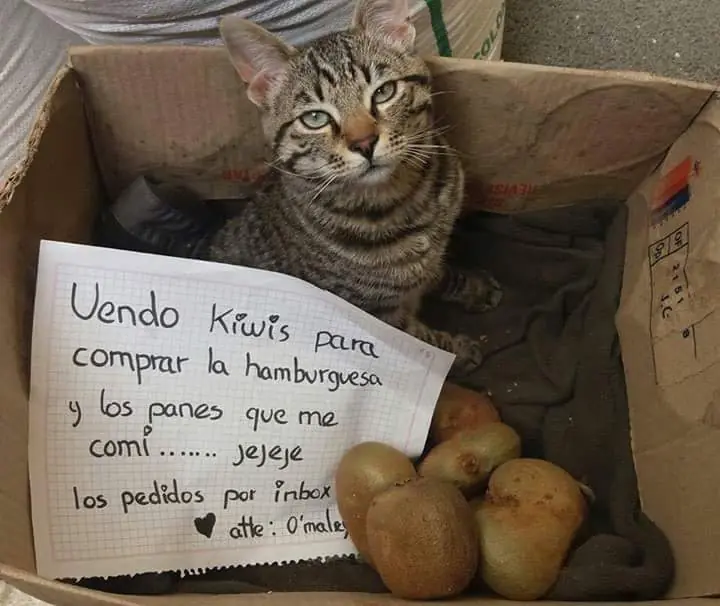 Vendo Kiwis para
comprar la hamburguesa
y los panes que me
comí ....... jejeje
los pedidos por inbox
♥ atte: O'maley